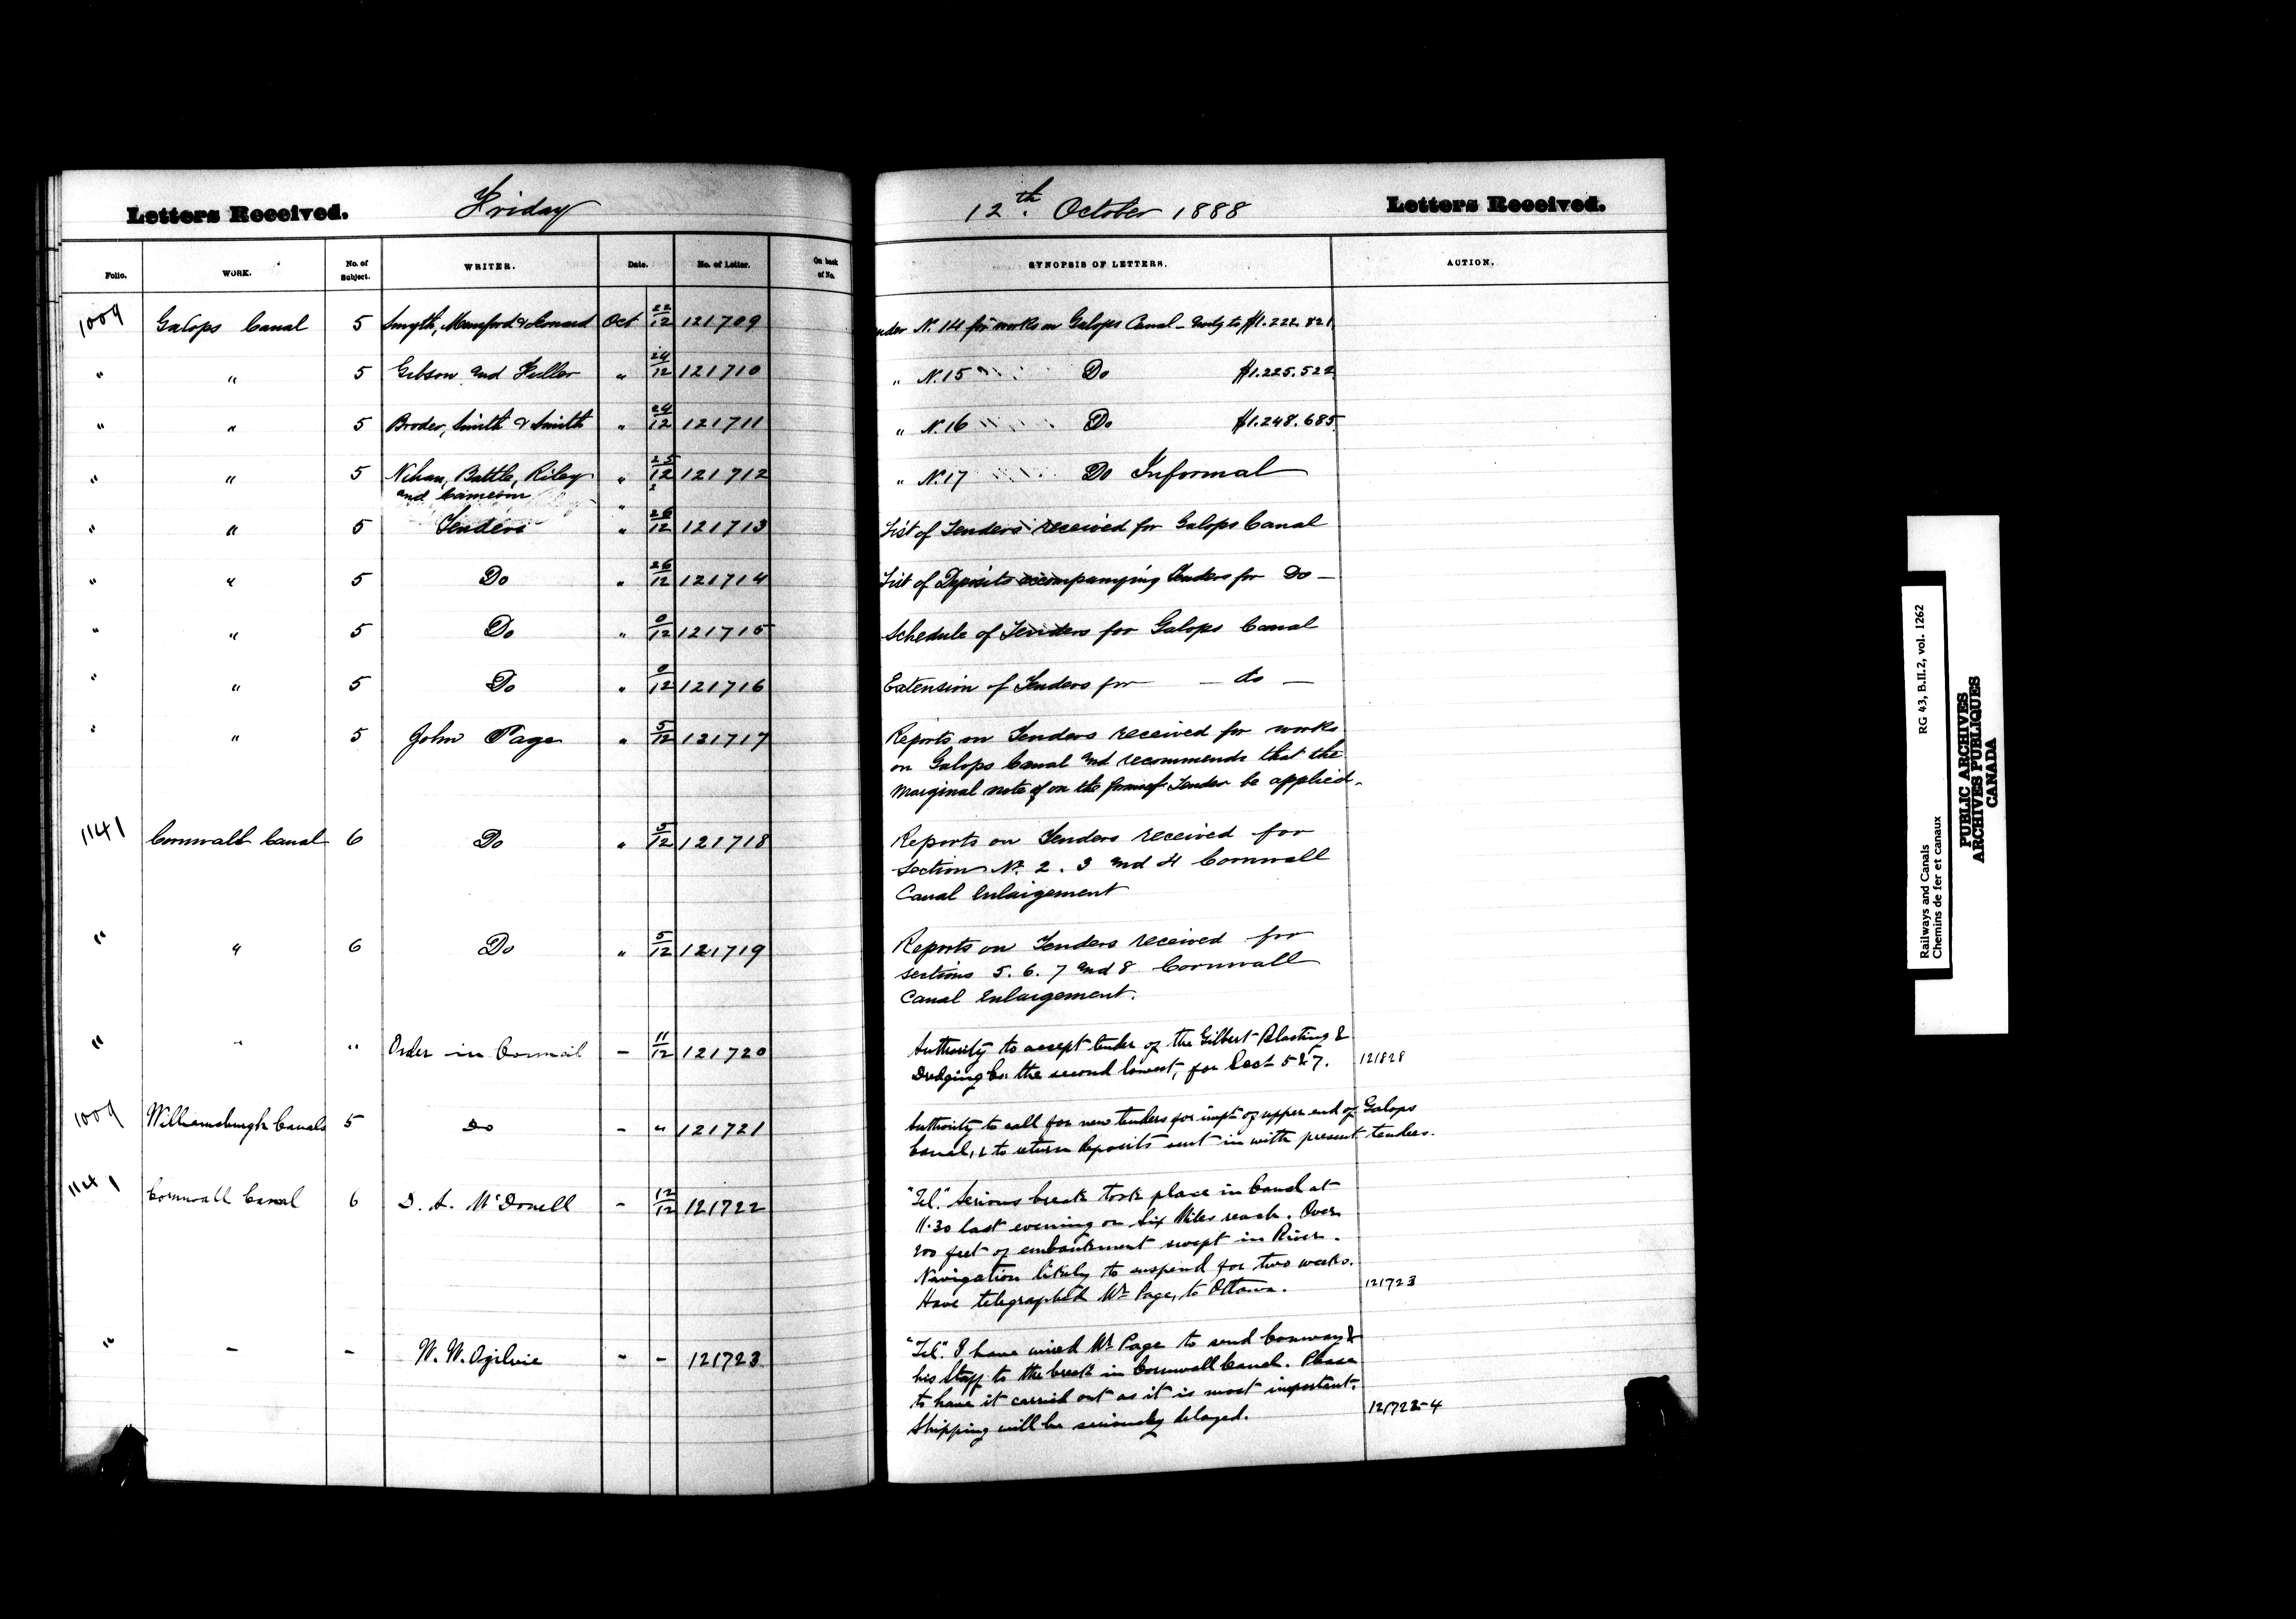 Letters Received. Friday 12th. October 1888 Letters Received.
Folio. WORK. No. of Subject. WRITER. Date. No. of Letter. On back of No. SYNOPSIS OF LETTERS. ACTION.
1009 Galops Canal 5 Smyth, & Oct 22/12 121709 nder No. 14 for works on Galops Canal - to $1.222.821
" " 5 Gibson and Fuller " 24/12 121710 " No. 15 Do $1.225.522
" " 5 Broder, Smith & Smith " 24/12 121711 " No. 16 Do $1.248.685
" " 5 Nihan, Battle, Riley " 25/12 121712 " No. 17 Do Informal
and Cameron
" " 5 Tenders " 26/12 121713 List of Tenders received for Galops Canal
" " 5 Do " 26/12 121714 List of Deposits accompanying Tenders for Do -
" " 5 Do " 0/12 121715 Schedule of Tenders for Galops Canal
" " 5 Do " 0/12 121716 Extension of Tenders for - do -
" " 5 John Page " 5/12 121717 Reports on Tenders received for works
on Galops Canal and recommends that the
marginal note on the form of Tender be applied.
1141 Cornwall Canal 6 Do " 5/12 121718 Reports on Tenders received for
Section No. 2. 3 and 4 Cornwall
Canal Enlargement
" " 6 Do " 5/12 121719 Reports on Tenders received for
sections 5. 6. 7 and 8 Cornwall
Canal Enlargement.
" " " Order in Council - 11/12 121720 Authority to accept tender of the Gilbert Blasting &
Dredging Co. the second lowest, for Sect 5 & 7. 121828
1009 Williamsburgh Canals 5 Do - " 121721 Authority to call for new tenders for impt. of upper end of Galops
Canal, & to return deposits sent in with present tenders.
1141 Cornwall Canal 6 D. A. McDonell - 12/12 121722 "Tel." Serious break took place in Canal at
11.30 last evening on Six Miles reach. Over
200 feet of embankment swept in River.
Navigation likely to suspend for two weeks.
Have telegraphed Mr Page, to Ottawa. 121723
" - - W. W. Ogilvie " - 121723 "Tel." I have wired Mr Page to send Conway &
his Staff to the break in Cornwall Canal. Please
to have it carried out as it is most important.
Shipping will be seriously delayed. 121722-4
Railways and Canals RG 43, B.II.2, vol. 1262
Chemins de fer et canaux
PUBLIC ARCHIVES
ARCHIVES PUBLIQUES
CANADA